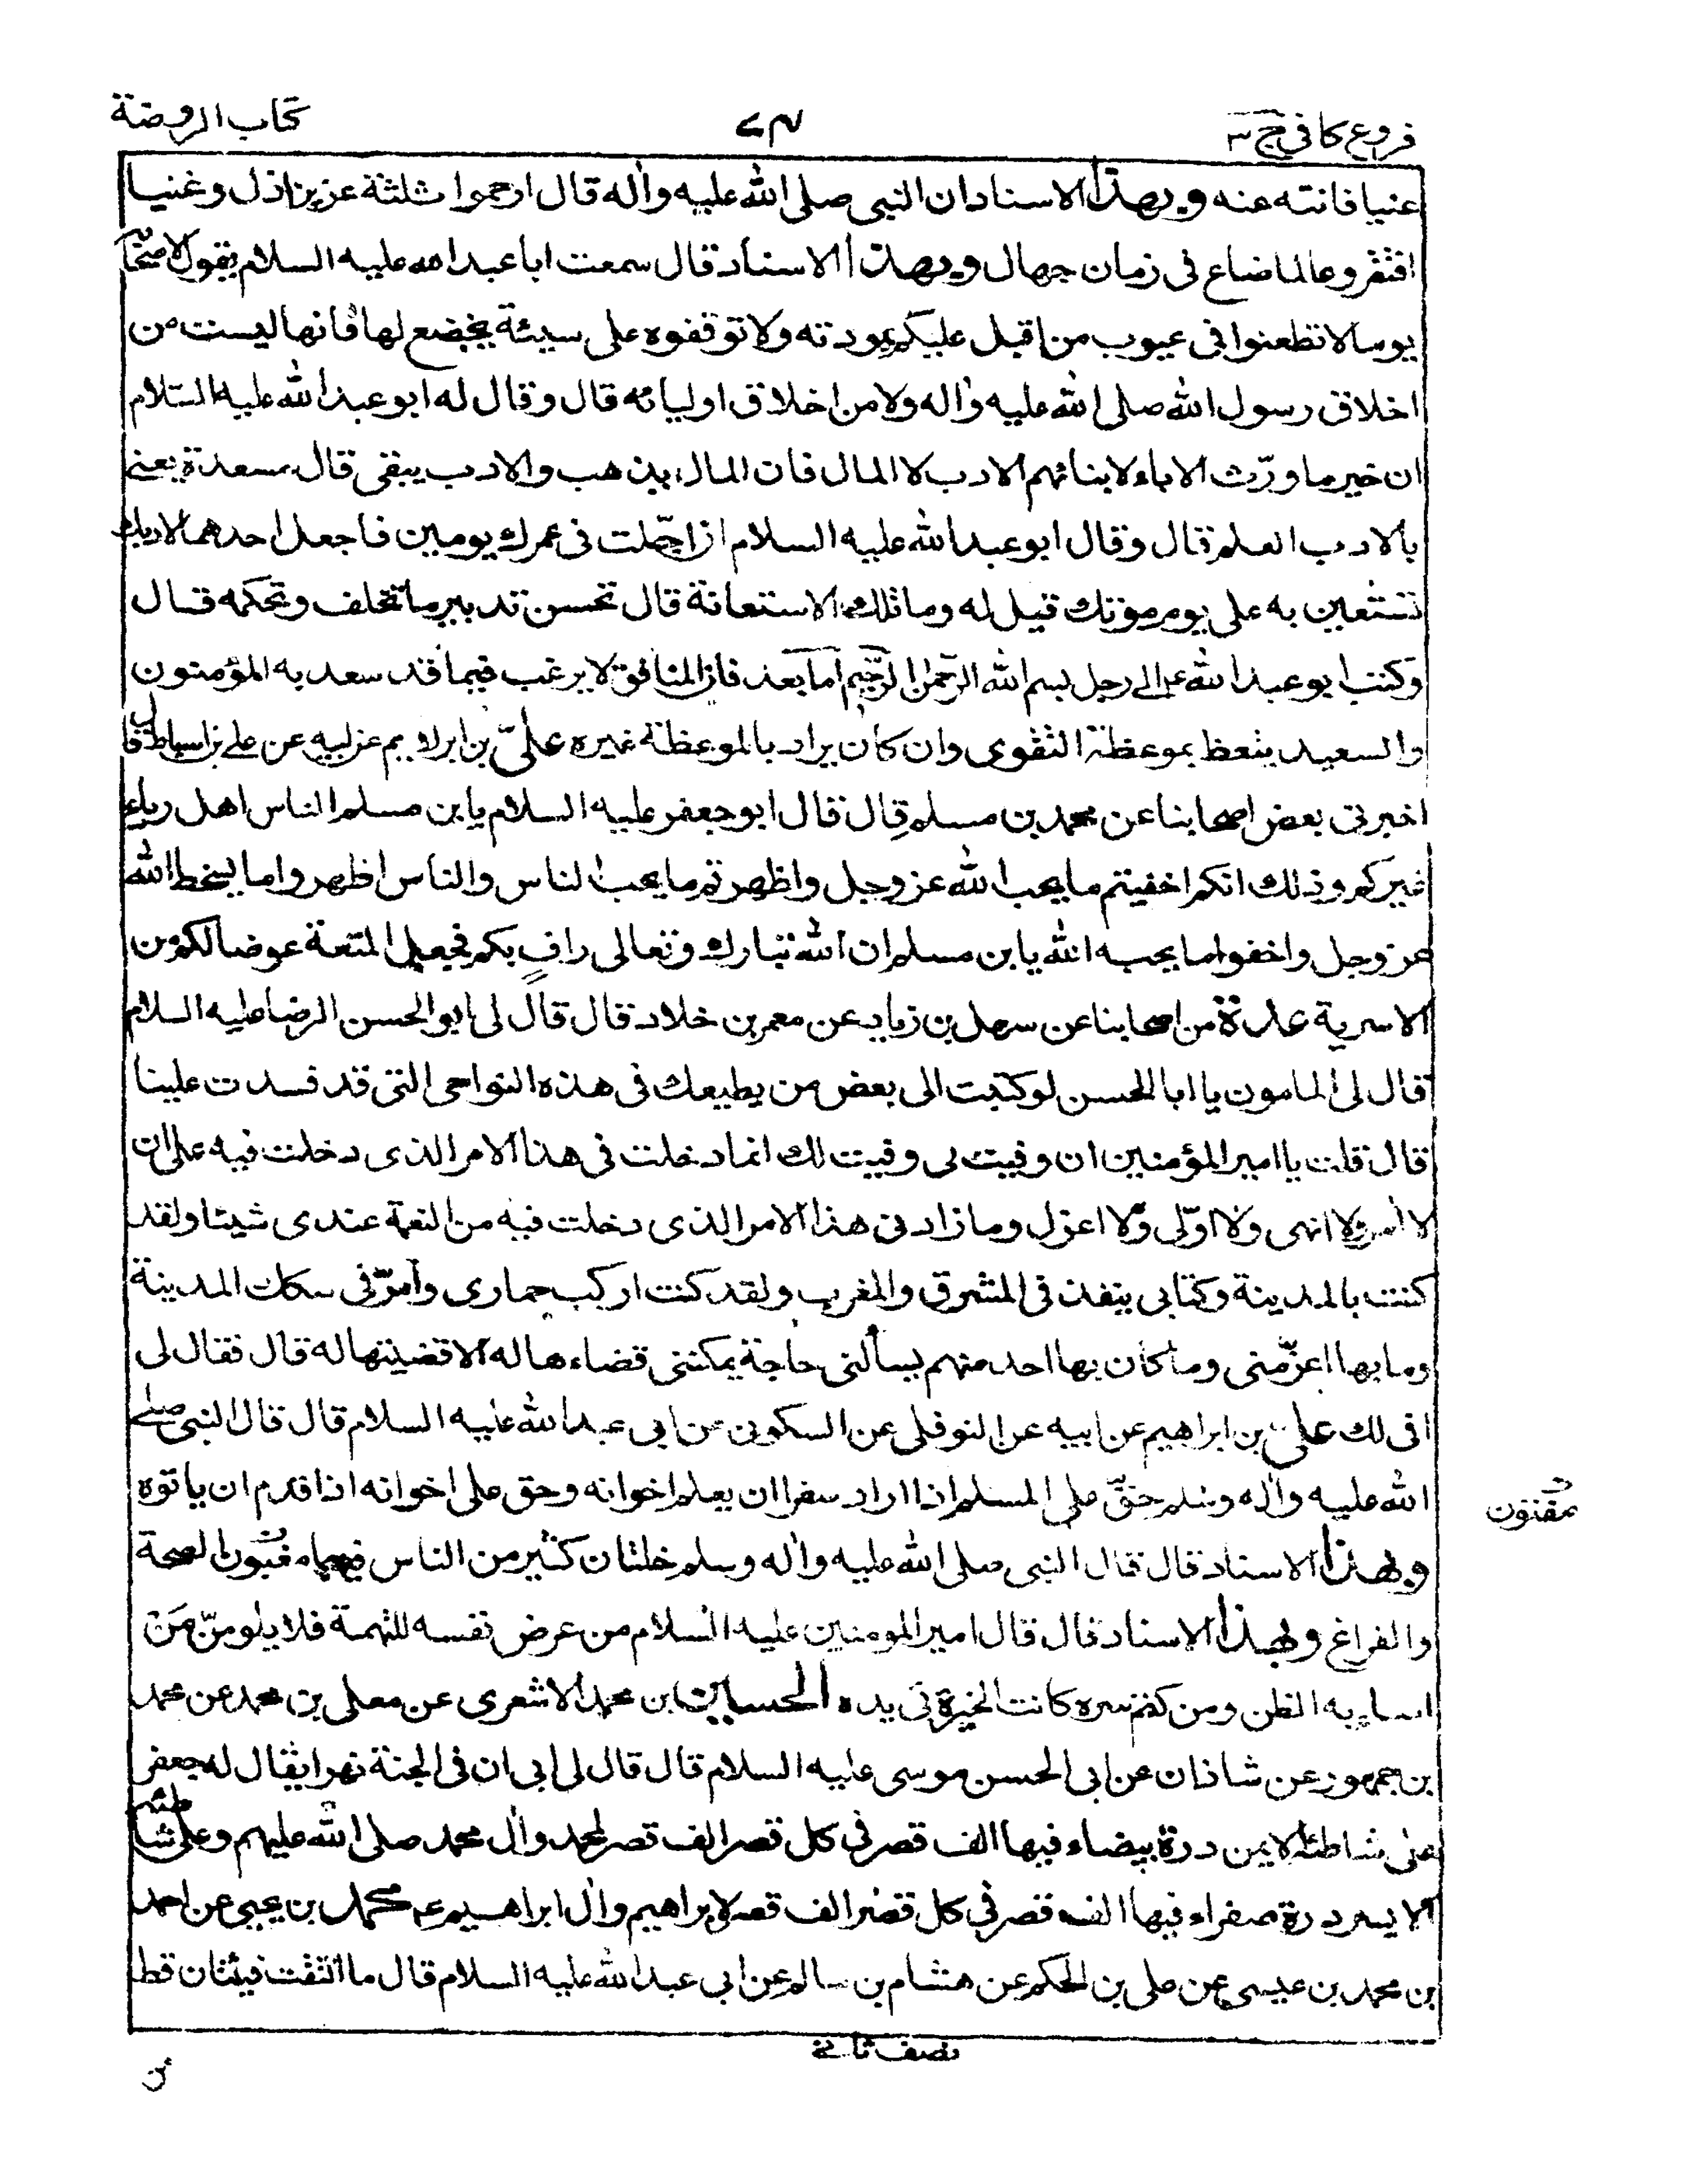 فروع كافى ج ٣
٧٤
كتاب الروضة
عنيا فانته عنه وبهذا الاسناد ان النبى صلى الله عليه واٰله قال ارحموا ثلثة عزيزا ذل وغنيا
افتقر وعالما ضاع فى زمان جهال وبهذا الاسناد قال سمعت ابا عبد الله عليه السلام يقول لاصحابه
يوما لا تطعنوا فى عيوب من اقبل عليكم بمودته ولا توقفوه على سيئة يخضع لها فانها ليست من
اخلاق رسول الله صلى الله عليه واٰله ولا من اخلاق اوليائه قال وقال له ابو عبد الله عليه السّلام
ان خير ما ورّث الاباء لابنائهم الادب لا المال فان المال يذهب والادب يبقى قال مسعدة يعنى
بالادب العلم قال وقال ابو عبد الله عليه السلام ان اجّلت فى عمرك يومين فاجعل احدهما لادبك
تستعين به على يوم موتك قيل له وما تلك الاستعانة قال تحسن تدبير ما تخلف وتحكمه قال
وكتب ابو عبد الله ع الى رجل بسم الله الرّحمٰن الرّحيم اما بعد فان المنافق لا يرغب فيما قد سعد به المؤمنون
والسعيد يتعظ بموعظة التقوى وان كان يراد بالموعظة غيره علىّ بن ابراهيم عن ابيه عن على بن اسباط قال
اخبرنى بعض اصحابنا عن محمد بن مسلم قال قال ابو جعفر عليه السلام يا بن مسلم الناس اهل رياء
غيركم وذلك انكم اخفيتم ما يحب الله عز وجل واظهرتم ما يحب الناس والناس اظهروا ما يسخط الله
عز وجل واخفوا ما يحبه الله يا بن مسلم ان الله تبارك وتعالى راف بكم فجعل المتعة عوضا لكم من
الاسرية عدة من اصحابنا عن سهل بن زياد عن معمر بن خلاد قال قال لى ابو الحسن الرضا عليه السلام
قال لى المامون يا ابا الحسن لو كتبت الى بعض من يطيعك فى هذه النواحى التى قد فسدت علينا
قال قلت يا امير المؤمنين ان وفيت لى وفيت لك انما دخلت فى هذا الامر الذى دخلت فيه على ان
لا اٰمر ولا انهى ولا اوّلى ولا اعزل وما زادنى هذا الامر الذى دخلت فيه من النعمة عندى شيئا ولقد
كنت بالمدينة وكتابى ينفذ فى المشرق والمغرب ولقد كنت اركب حمارى وامرّ فى سكك المدينة
وما بها اعزّ منى وما كان بها احد منهم يسألنى حاجة يمكننى قضاءها له الا قضيتها له قال فقال لى
افى لك على بن ابراهيم عن ابيه عن النوفلى عن السكونى عن ابى عبد الله عليه السلام قال قال النبى صلى
الله عليه واٰله وسلم حقّ على المسلم اذا اراد سفرا ان يعلم اخوانه وحق على اخوانه اذا قدم ان ياتوه
مفتون
وبهذا الاسناد قال قال النبى صلى الله عليه واٰله وسلم خلتان كثير من الناس فيهما مغبون الصحة
والفراغ وبهذا الاسناد قال قال امير المومنين عليه السلام من عرض نفسه للتهمة فلا يلومنّ من
اساء به الظن ومن كتم سره كانت الخيرة فى يده الحسين بن محمد الاشعرى عن معلى بن محمد عن محمد
بن جمهور عن شاذان عن ابى الحسن موسى عليه السلام قال قال لى ابى ان فى الجنة نهرا يقال له جعفر
على شاطئه الايمن درة بيضاء فيها الف قصر فى كل قصر الف قصر لمحمد واٰل محمد صلى الله عليهم وعلى شاطئه
الايسر درة صفراء فيها الف قصر فى كل قصر الف قصر لابراهيم واٰل ابراهيم ع محمد بن يحيى عن احمد
بن محمد بن عيسى عن على بن الحكم عن هشام بن سالم عن ابى عبد الله عليه السلام قال ما التقت فئتان قط
نصف ثانى
من